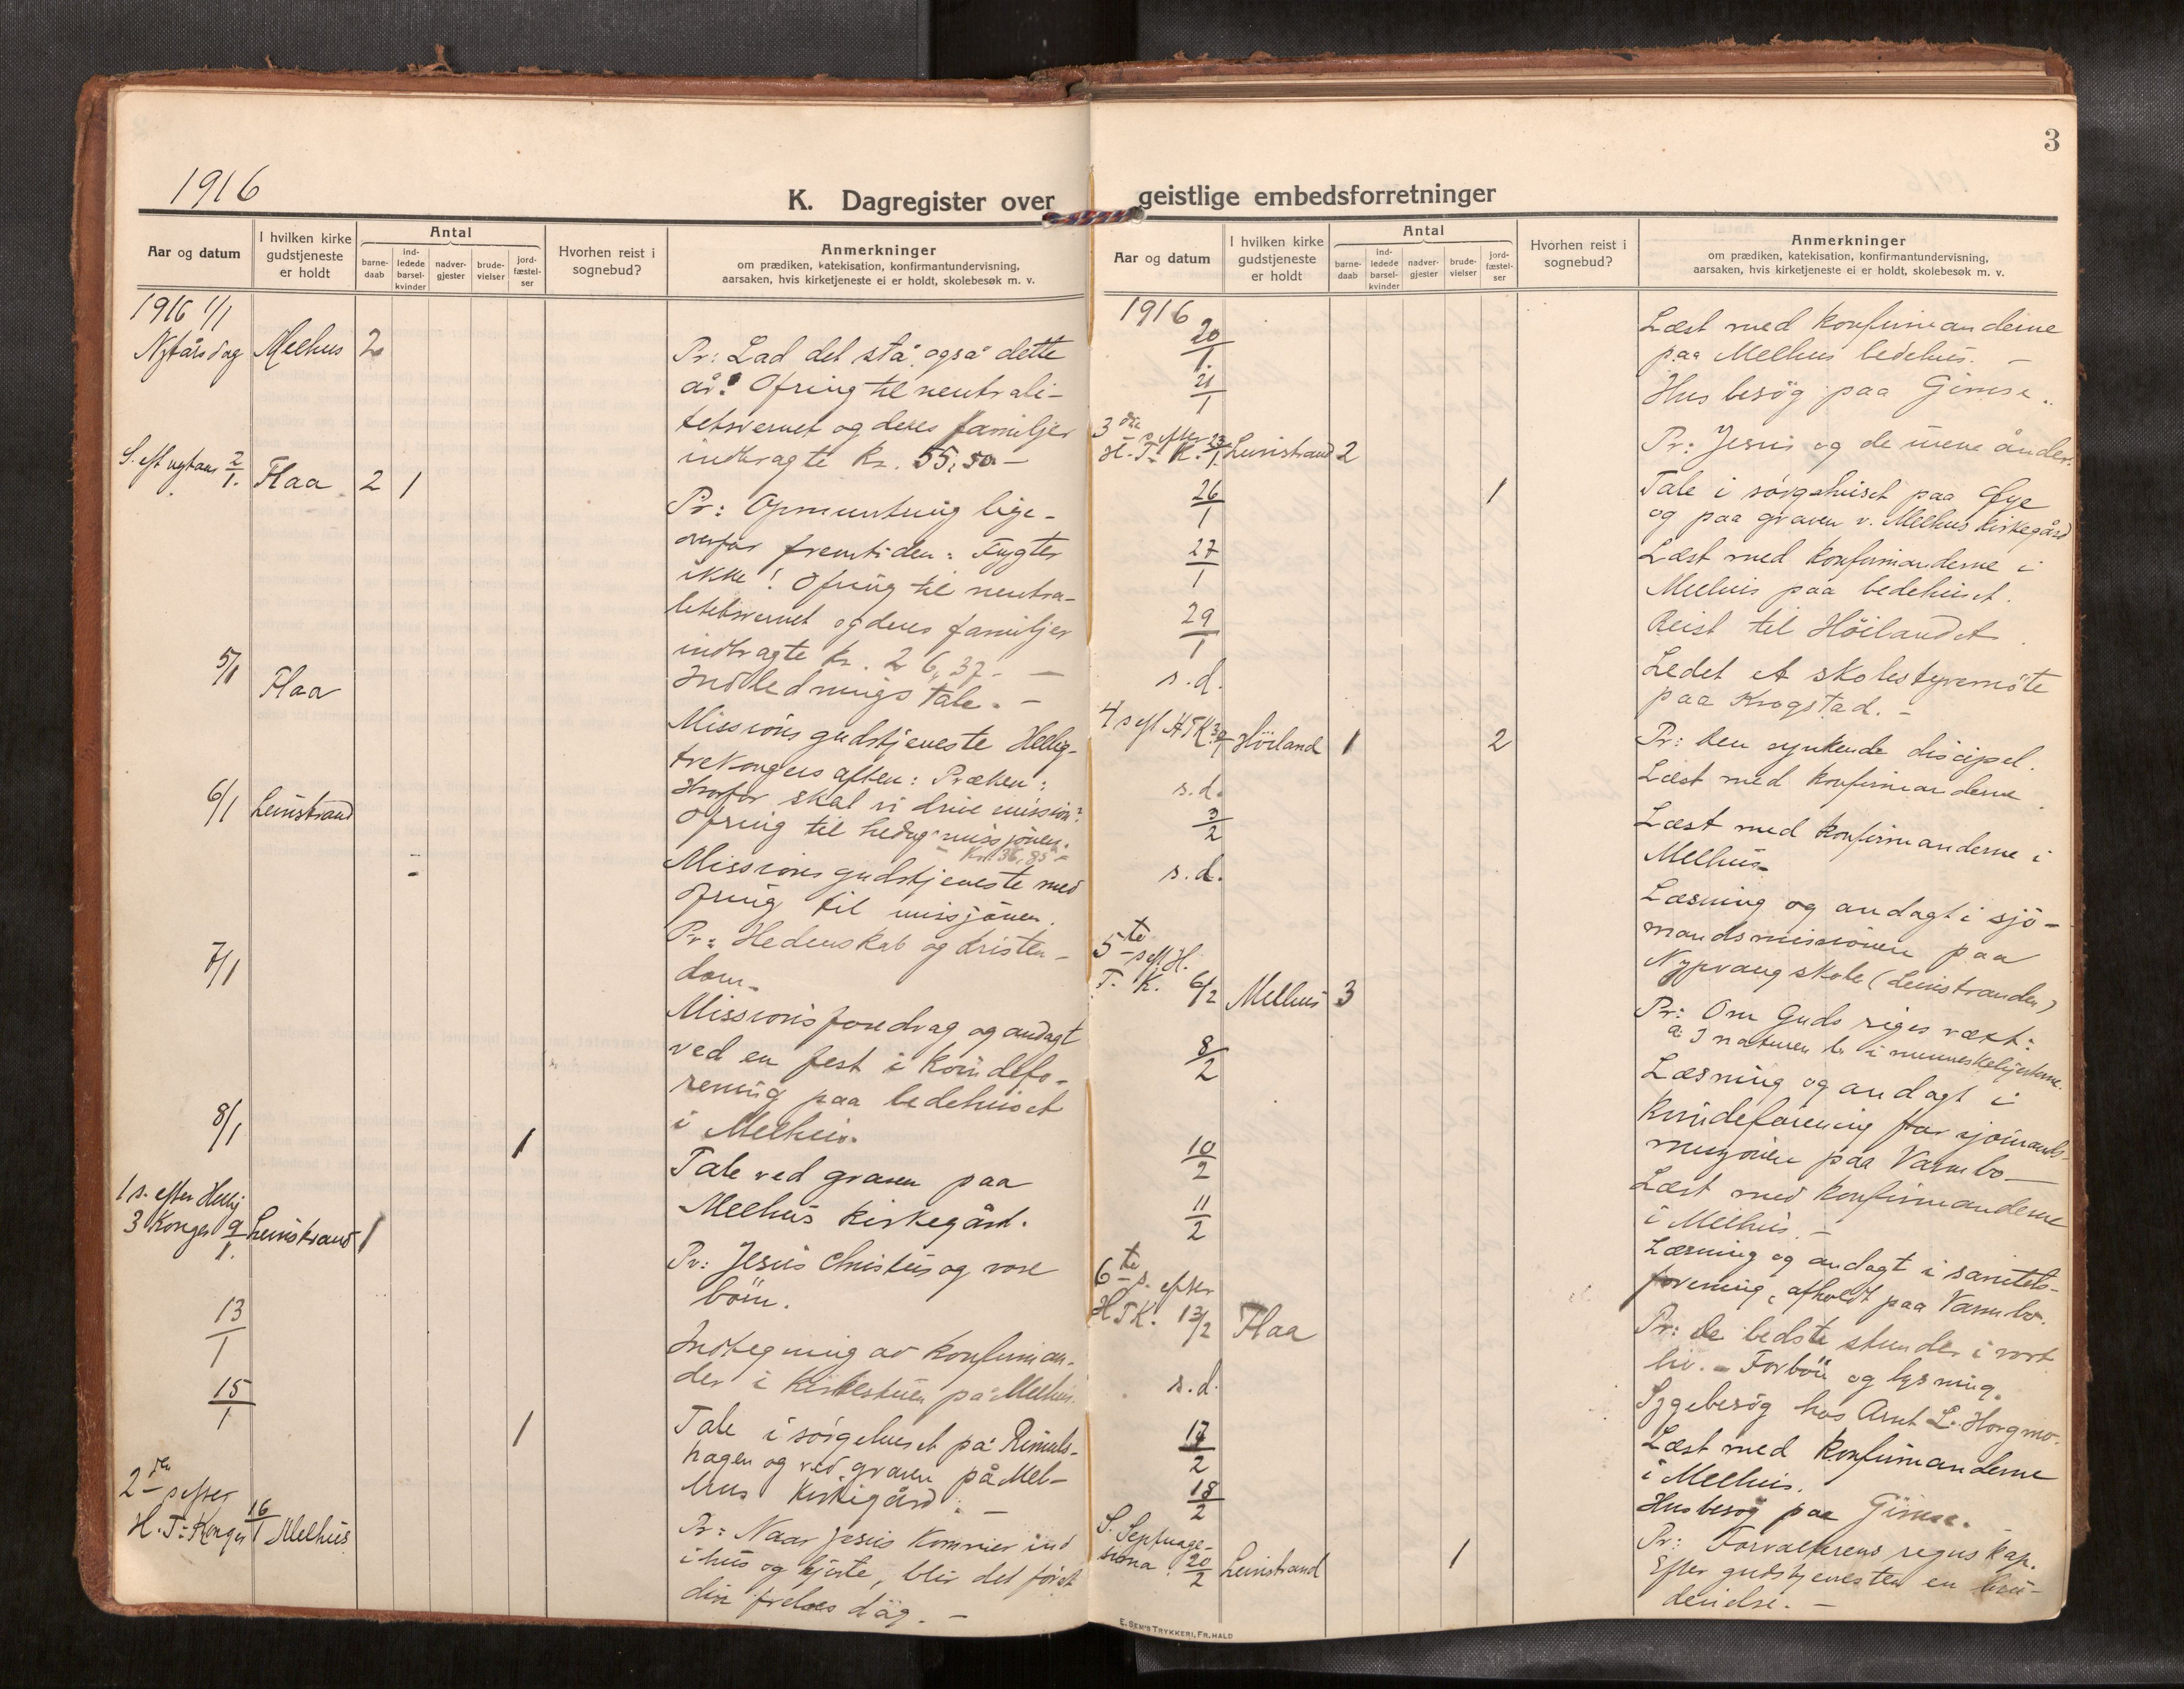 1916
K. Dagregister over
Aar og datum
I hvilken kirke gudstjeneste er holdt
Antal
barne-daab
ind-ledede barsel-kvinder
nadver-gjester
brude-vielser
jord-fæstel-ser
Hvorhen reist i sognebud?
Anmerkninger
om prædiken, katekisation, konfirmantundervisning,
aarsaken, hvis kirketjeneste ei er holdt, skolebesøk m. v.
1916 1/1
Nytårsdag Melhus 2
Pr: Lad det stå også dette
år! Ofring til neutrali-
tetsvernet og deres familjer
indbragte kr. 55,50 -
S. eft nytaar 2/1. Flaa 2 1
Pr: Opmuntring lige-
overfor fremtiden: Frygter
ikke! Ofring til neutra-
litetsvernet og deres familjer
indbragte kr. 26,37. -
5/1 Flaa
Indledningstale. -
Missionsgudstjeneste Hellig-
trekongers aften: Præken:
Hvorfor skal vi drive mission?
Ofring til hedningmissjonen.
Kr. 36,85 -
6/1 Leinstrand
Missionsgudstjeneste med
ofring til missjonen.
Pr: Hedenskab og kristen-
dom.
7/1
Missionsforedrag og andagt
ved en fest i kvindefo-
rening paa bedehuset
i Melhus.
8/1 1
Tale ved graven paa
Melhus kirkegård.
1 s. efter Hellig
3 Konger 9/1. Leinstrand 1
Pr: Jesus Christus og vore
börn.
13/1
Indtegning av konfirman-
der i kirkestuen på Melhus.
15/1 1
Tale i sörgehuset på Rimols-
hagen og ved graven på Mel-
hus kirkegård. -
2den s efter
H. T. Konger 16/1 Melhus
Pr: Naar Jesus kommer ind
i hus og hjerte, blir det först
din frelses dag. -
3
geistlige embedsforretninger
Aar og datum
I hvilken kirke gudstjeneste er holdt
Antal
barne-daab
ind-ledede barsel-kvinder
nadver-gjester
brude-vielser
jord-fæstel-ser
Hvorhen reist i sognebud?
Anmerkninger
om prædiken, katekisation, konfirmantundervisning,
aarsaken, hvis kirketjeneste ei er holdt, skolebesøk m. v.
1916
20/1.
Læst med konfirmanderne
paa Melhus bedehus. -
21/1
Husbesög paa Gimse.
3die s. efter
H. T. K. 23/1. Leinstrand 2
Pr: Jesus og de urene ånder.
26/1 1
Tale i sörgehuset paa Öye
og paa graven v. Melhus kirkegård
27/1
Læst med konfirmanderne i
Melhus paa bedehuset.
29/1
Reist til Höilandet.
s. d.
Ledet et skolestyremöte
paa Krogstad. -
4 s eft HTK 30/1 Höiland 1 2
Pr: Den synkende discipel.
s. d.
Læst med konfirmanderne.
3/2
Læst med konfirmanderne i
Melhus.
s. d.
Læsning og andagt i sjö-
mandsmissionen paa
Nypvang skole (Leinstranden)
5te s eft H.
T. K. 6/2 Melhus 3
Pr: Om Guds riges vækst:
a: I naturen b. i menneskehjerterne.
8/2
Læsning og andagt i
kvindeforening for sjömands-
misjonen paa Varmbo -
10/2
Læst med konfirmanderne
i Melhus. -
11/2
Læsning og andagt i sanitets-
forening, afholdt paa Varmbo.
6te s. efter
HTK. 13/2 Flaa
Pr: De bedste stunder i vort
liv. - Forbön og lysning.
s. d.
Sygebesög hos Arnt L. Horgmo.
17/2
Læst med konfirmanderne
i Melhus.
18/2
Husbesög paa Gimse.
S. Septuage-
sima. 20/2 Leinstrand 1
Pr: Forvalterens regnskap.
Efter gudstjenesten en bru-
devielse. -
E. SEM'S TRYKKERI, FR.HALD